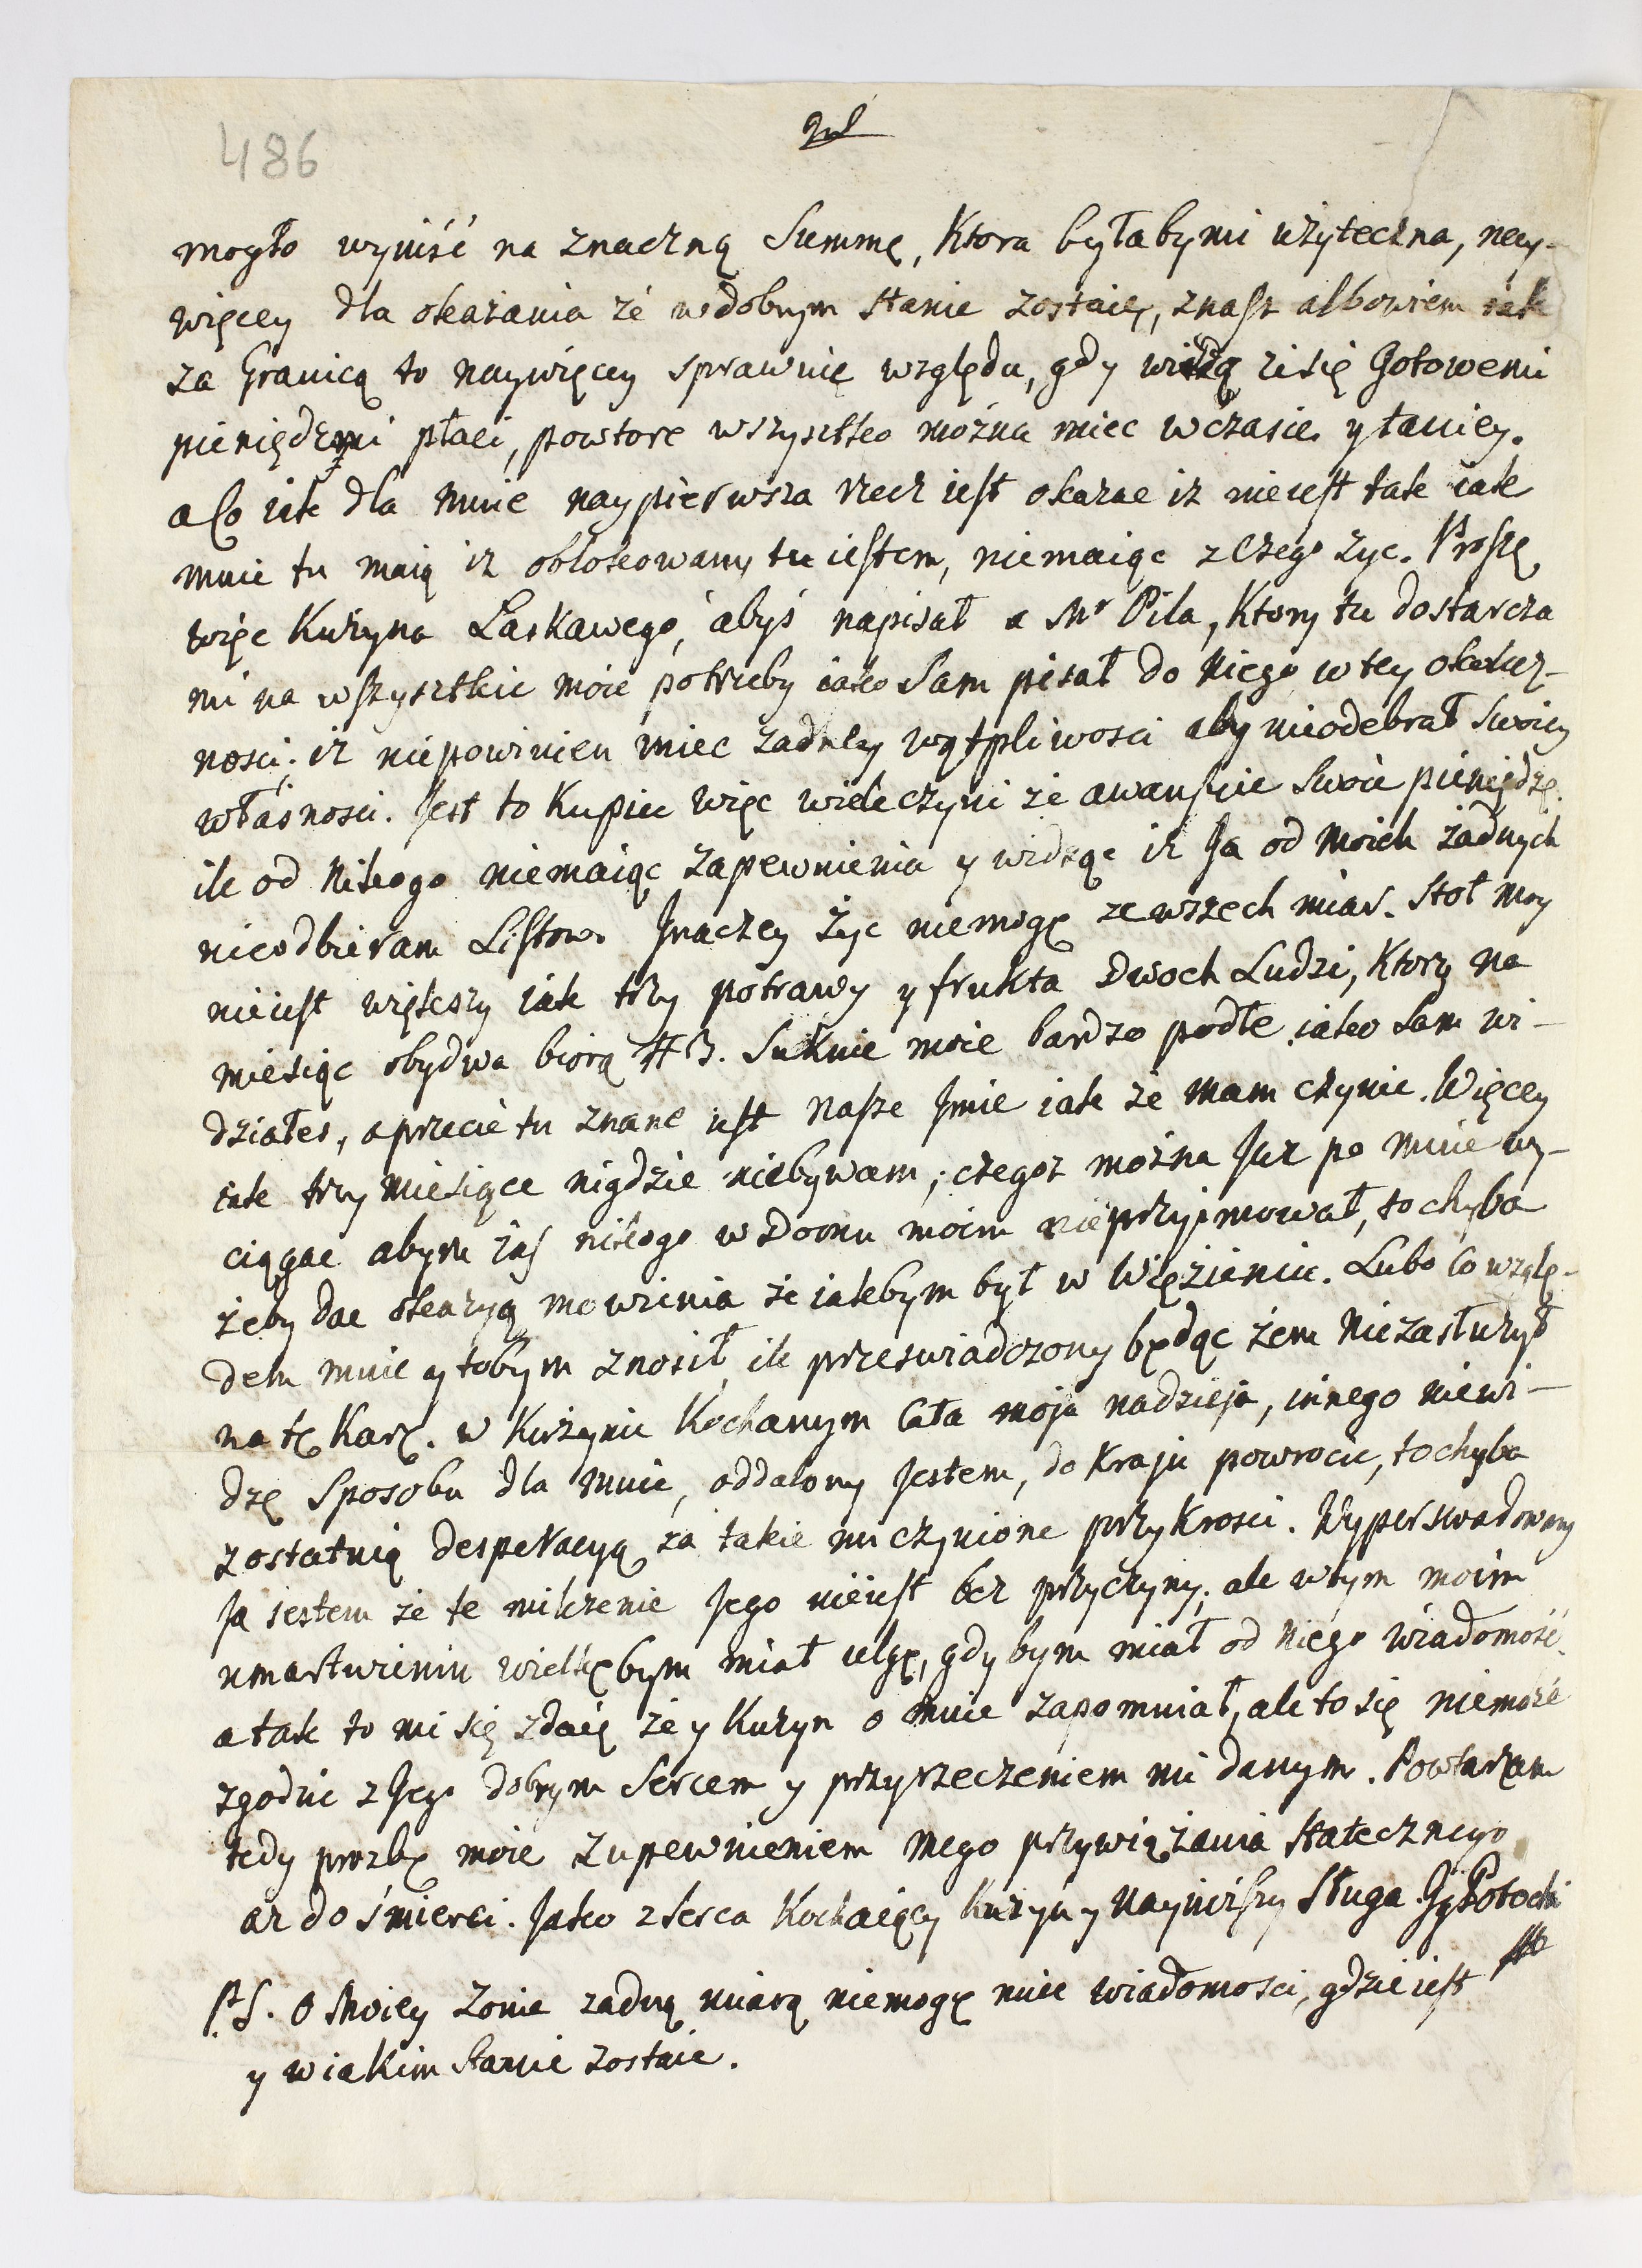 486
mogło wyniść na znaczną Summę, Ktora byłabymi użyteczna, nay-
więcey dla okazania że w dobrym stanie zostaię, znasz albowiem iak
za Granicą to naywięcey sprawuię względu, gdy widzą zisię Gotowemi
pieniędzmi płaci, powtore wszysztko można miec wczasie y taniey.
a Co iak dla mnie naypierwsza rzecz iest okazac iz nieiest tak iak
mnie tu maią iz oblokowany tu iestem, niemaiąc z Czego życ. Proszę
więc Kuzyna Laskawego, abyś napisał a Mr Pila, Ktory tu dostarcza
mi na wszysztkie moie potrzeby iako Sam pisał do Niego w tey okolicz-
nosci; iz niepowinien miec zadney wątpliwosci aby nieodebrał Swoiey
własnosci. Jest to Kupiec więc wiele czyni że awansuie Swoie pieniędze.
ile od Nikogo niemaiąc zapewnienia y widząc iz Ja od Moich żadnych
nieodbieram Listow. Jnaczey Życ niemogę ze wszech miar. Stoł moy
nieiest większy iak trzy potrawy y frukta Dwoch Ludzi, Ktorzy na
miesiąc obydwa biorą # 3. Suknie moie bardzo podłe iako Sam wi-
działes, a przecie tu znane iest Nasze Jmie iak że mam czynic. Więcey
iak trzy Miesiące nigdzie niebywam; czegoz można Juz po mnie wy-
ciągac abym zaś nikogo w Domu moim nieprzyimował, to chyba
żeby dac okazyą mowienia że iakbym był w Więzieniu. Lubo Co wzglę-
dem mnie y tobym znosił, ile przeswiadczony będąc żem Niezasłużył
na tę Karę. w Kużynie Kochanym Cała moja nadzieja, innego niewi-
dzę Sposobu dla Mnie, oddalony Jestem, do Kraju powrocic, to chyba
z ostatnią desperacyą za takie mi czynione przykrosci. Wyperswadowany
Ja iestem że te milczenie Jego nieiest bez przyczyny; ale w tym moim
umartwieniu wielkębym miał ulgę, gdy bym miał od Niego wiadomość.
a tak to mi się zdaię że y Kuzyn o mnie zapomniał, ale to się niemoże
zgodzic z Jego dobrym Sercem y przyrzeczeniem mi danym. Powtarzam
tedy prozbę moie zupewnieniem Mego przywiązania statecznego
az do śmierci. Jako z Serca Kochaiący Kuzyn y Nayniższy Sługa Potocki
P.S. O Moiey Zonie zadną miarą niemogę miec wiadomosci, gdzie iest
y w iakim stanie zostaie.